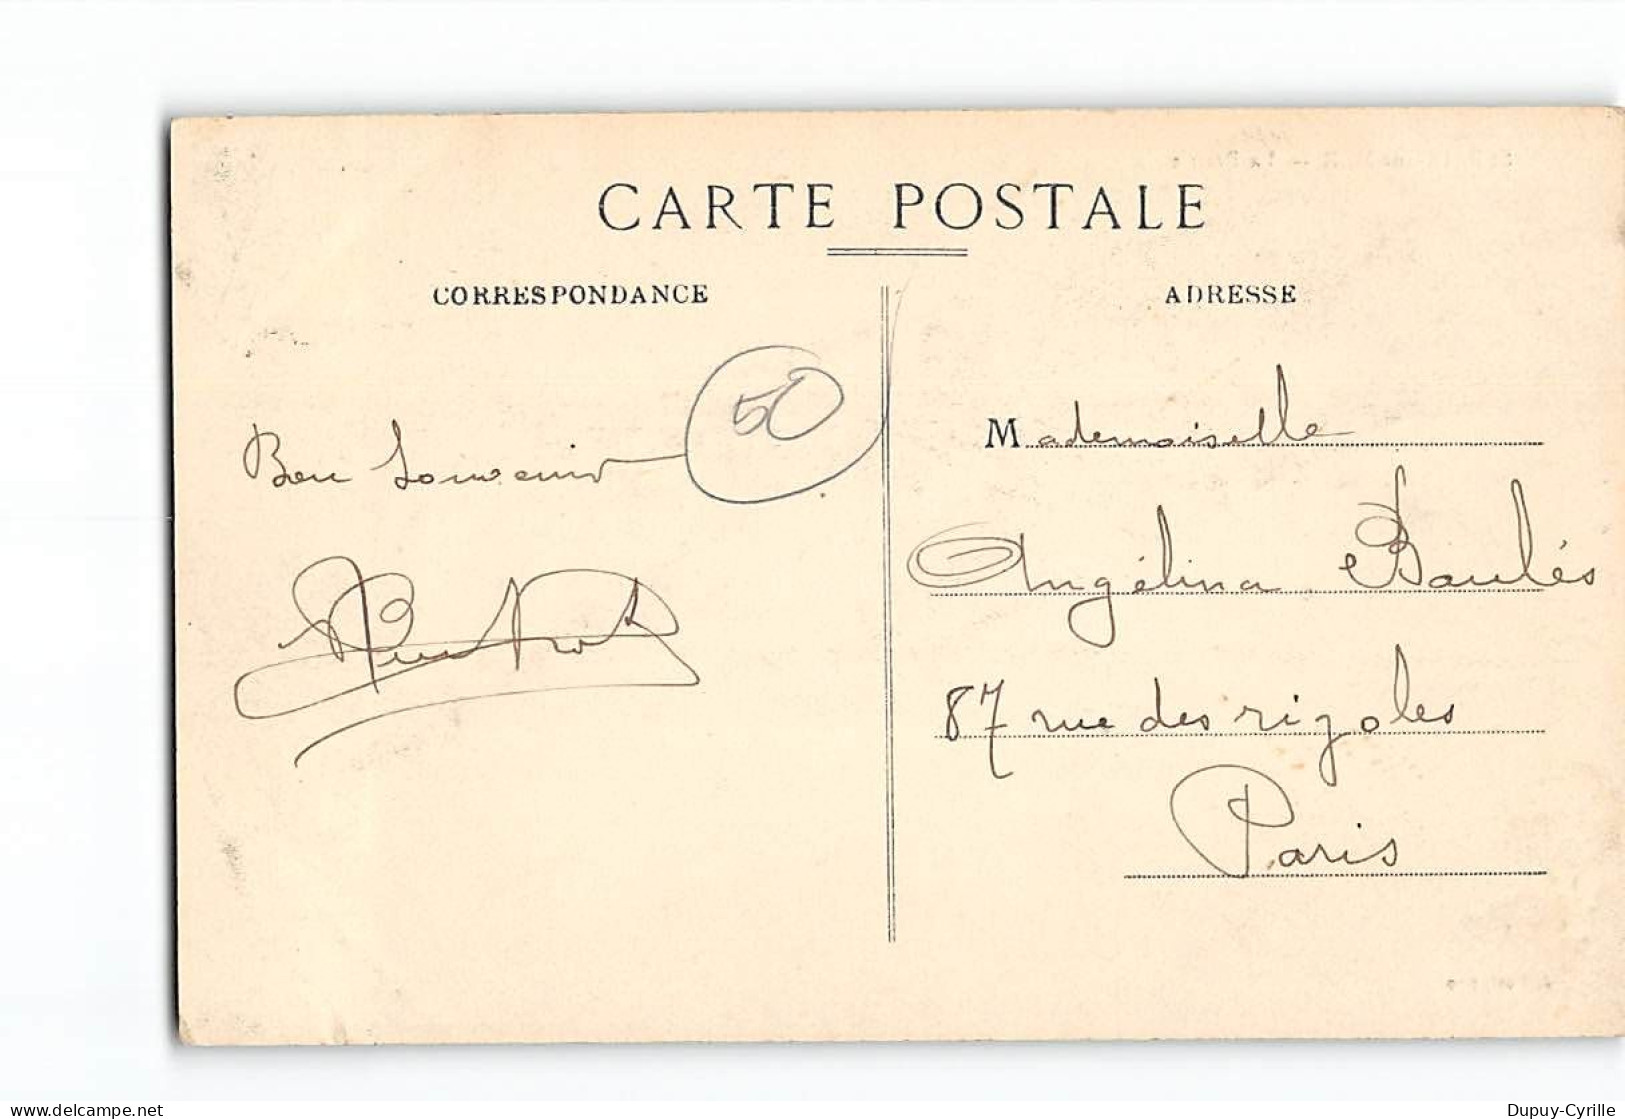 CARTE POSTALE
CORRESPONDANCE
ADRESSE
50
Bon Souvenir
Mademoiselle
Angélina Baulés
87 rue des rigoles
Paris
delcampe.net
Dupuy-Cyrille